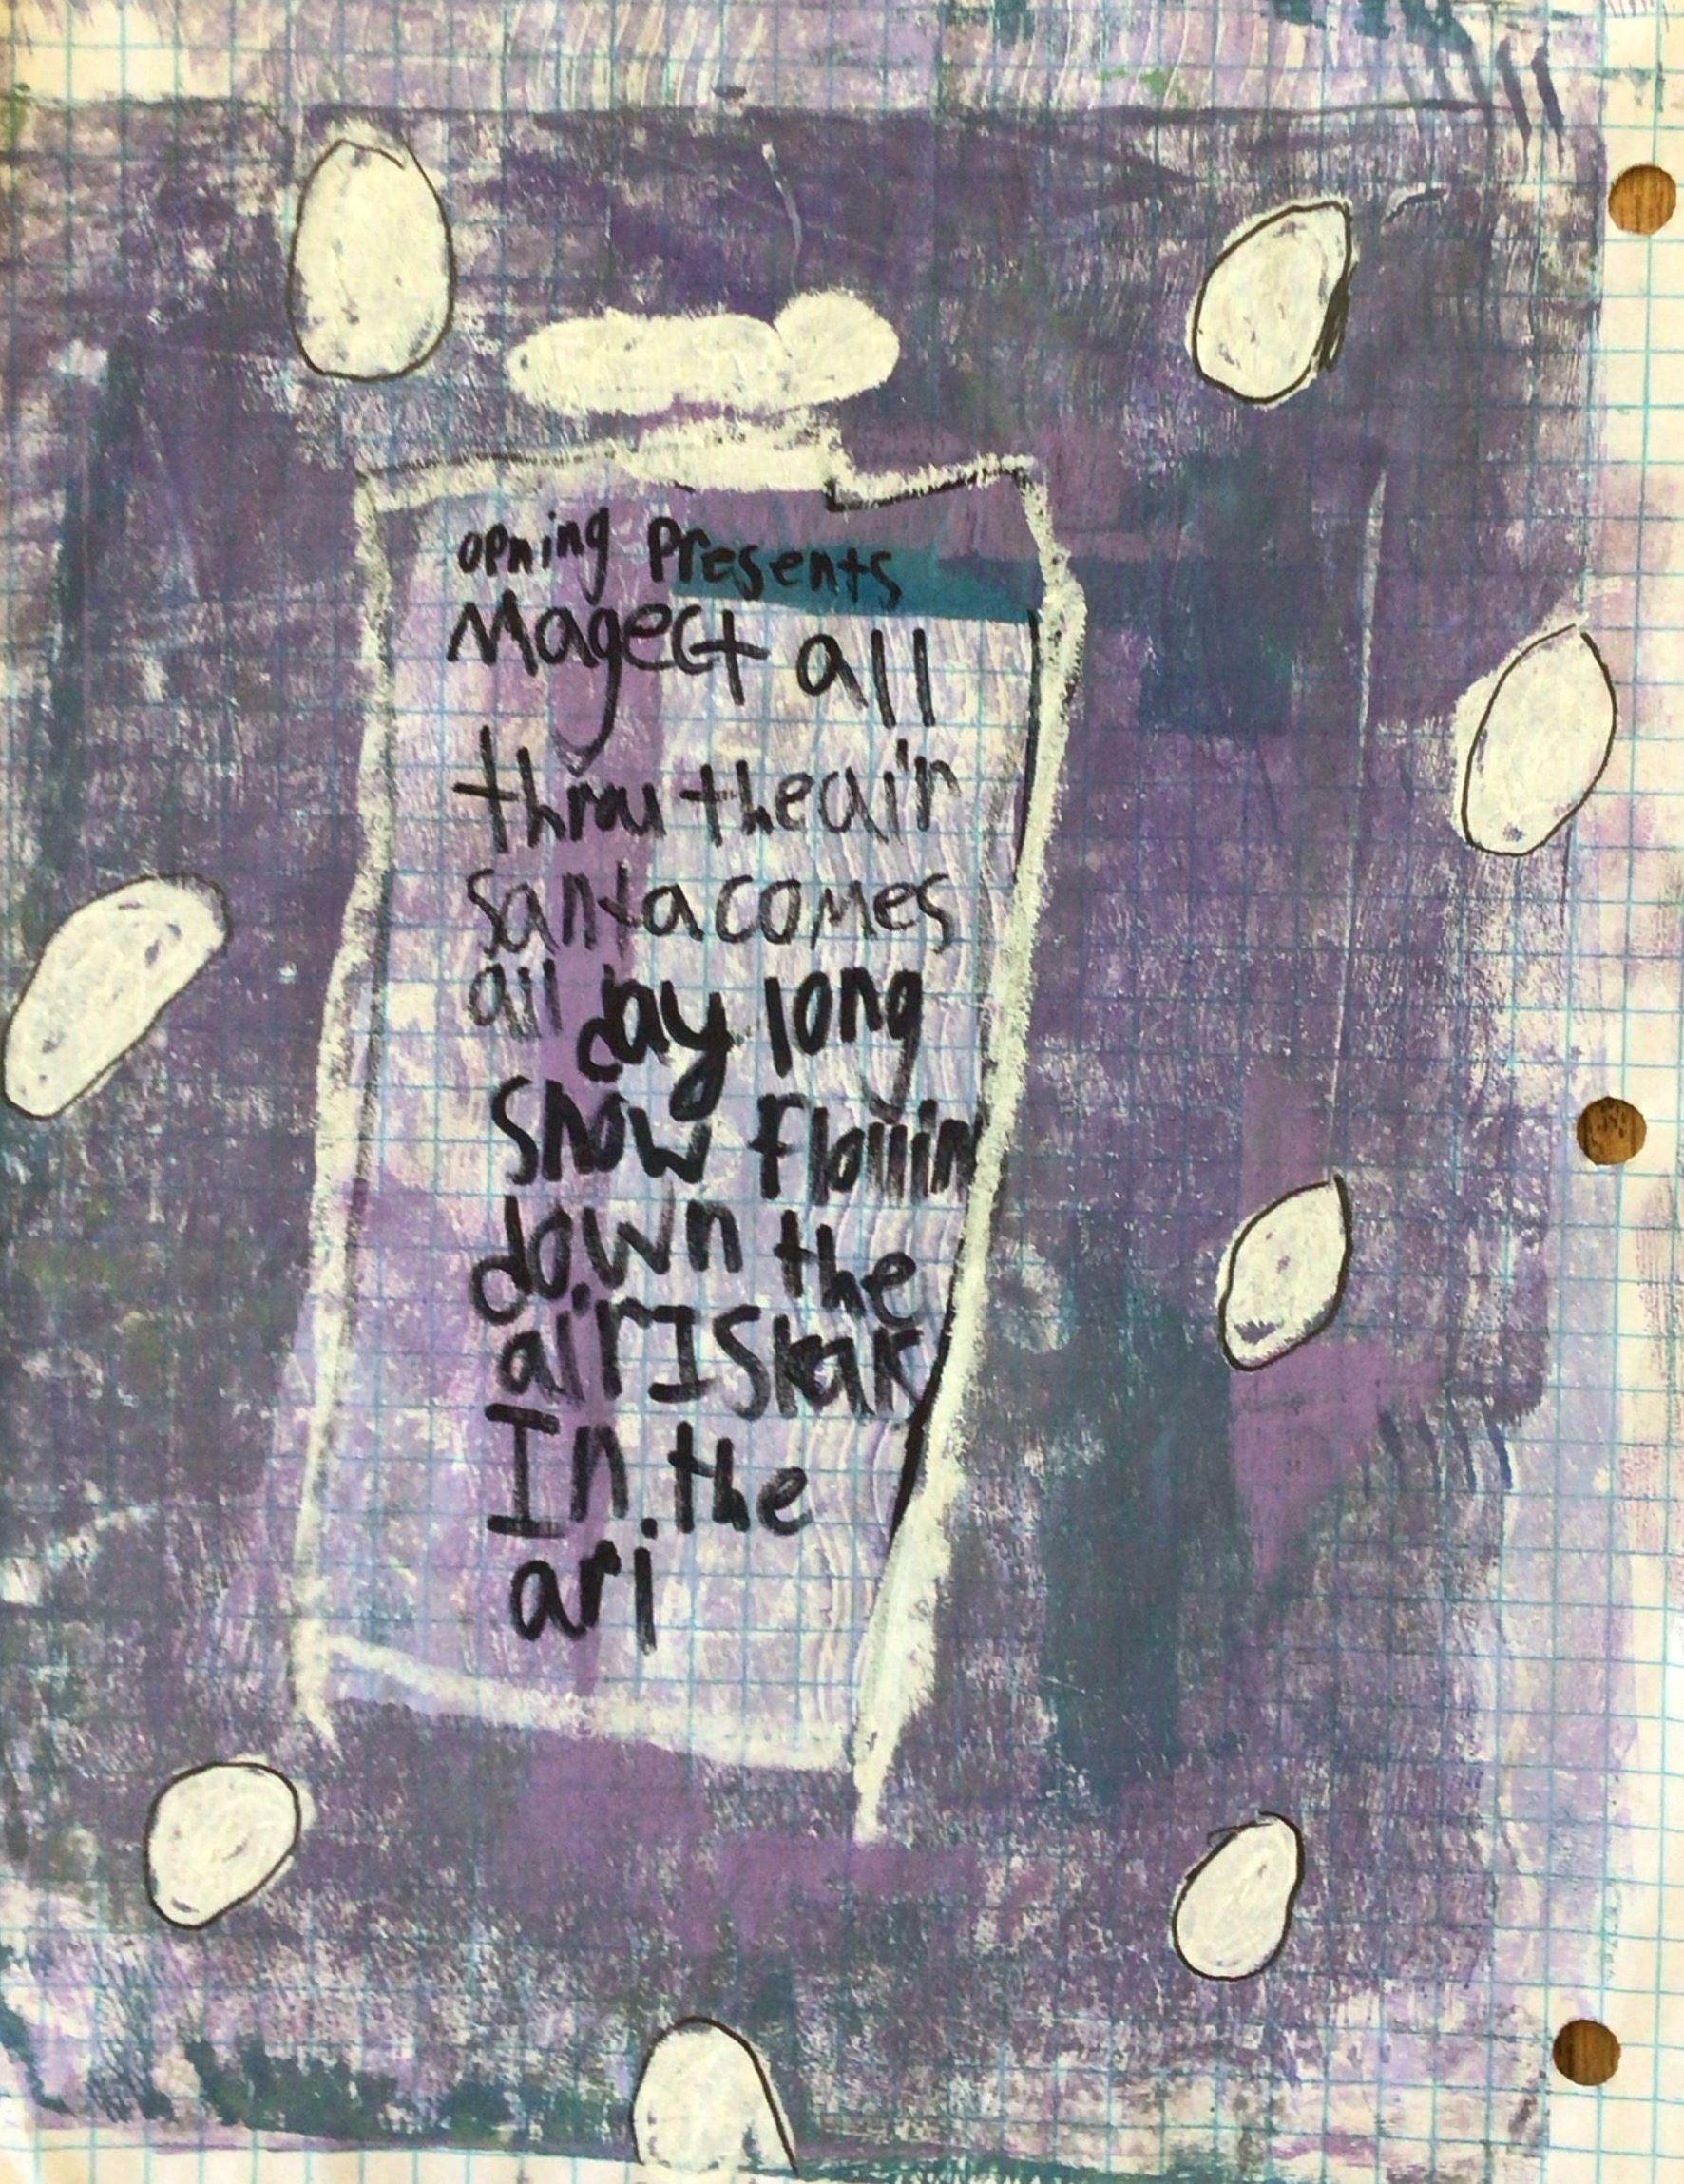 opning Presents
Magect all
throu the air
santa comes
all day long
Snow
down the
air I
In the
ari